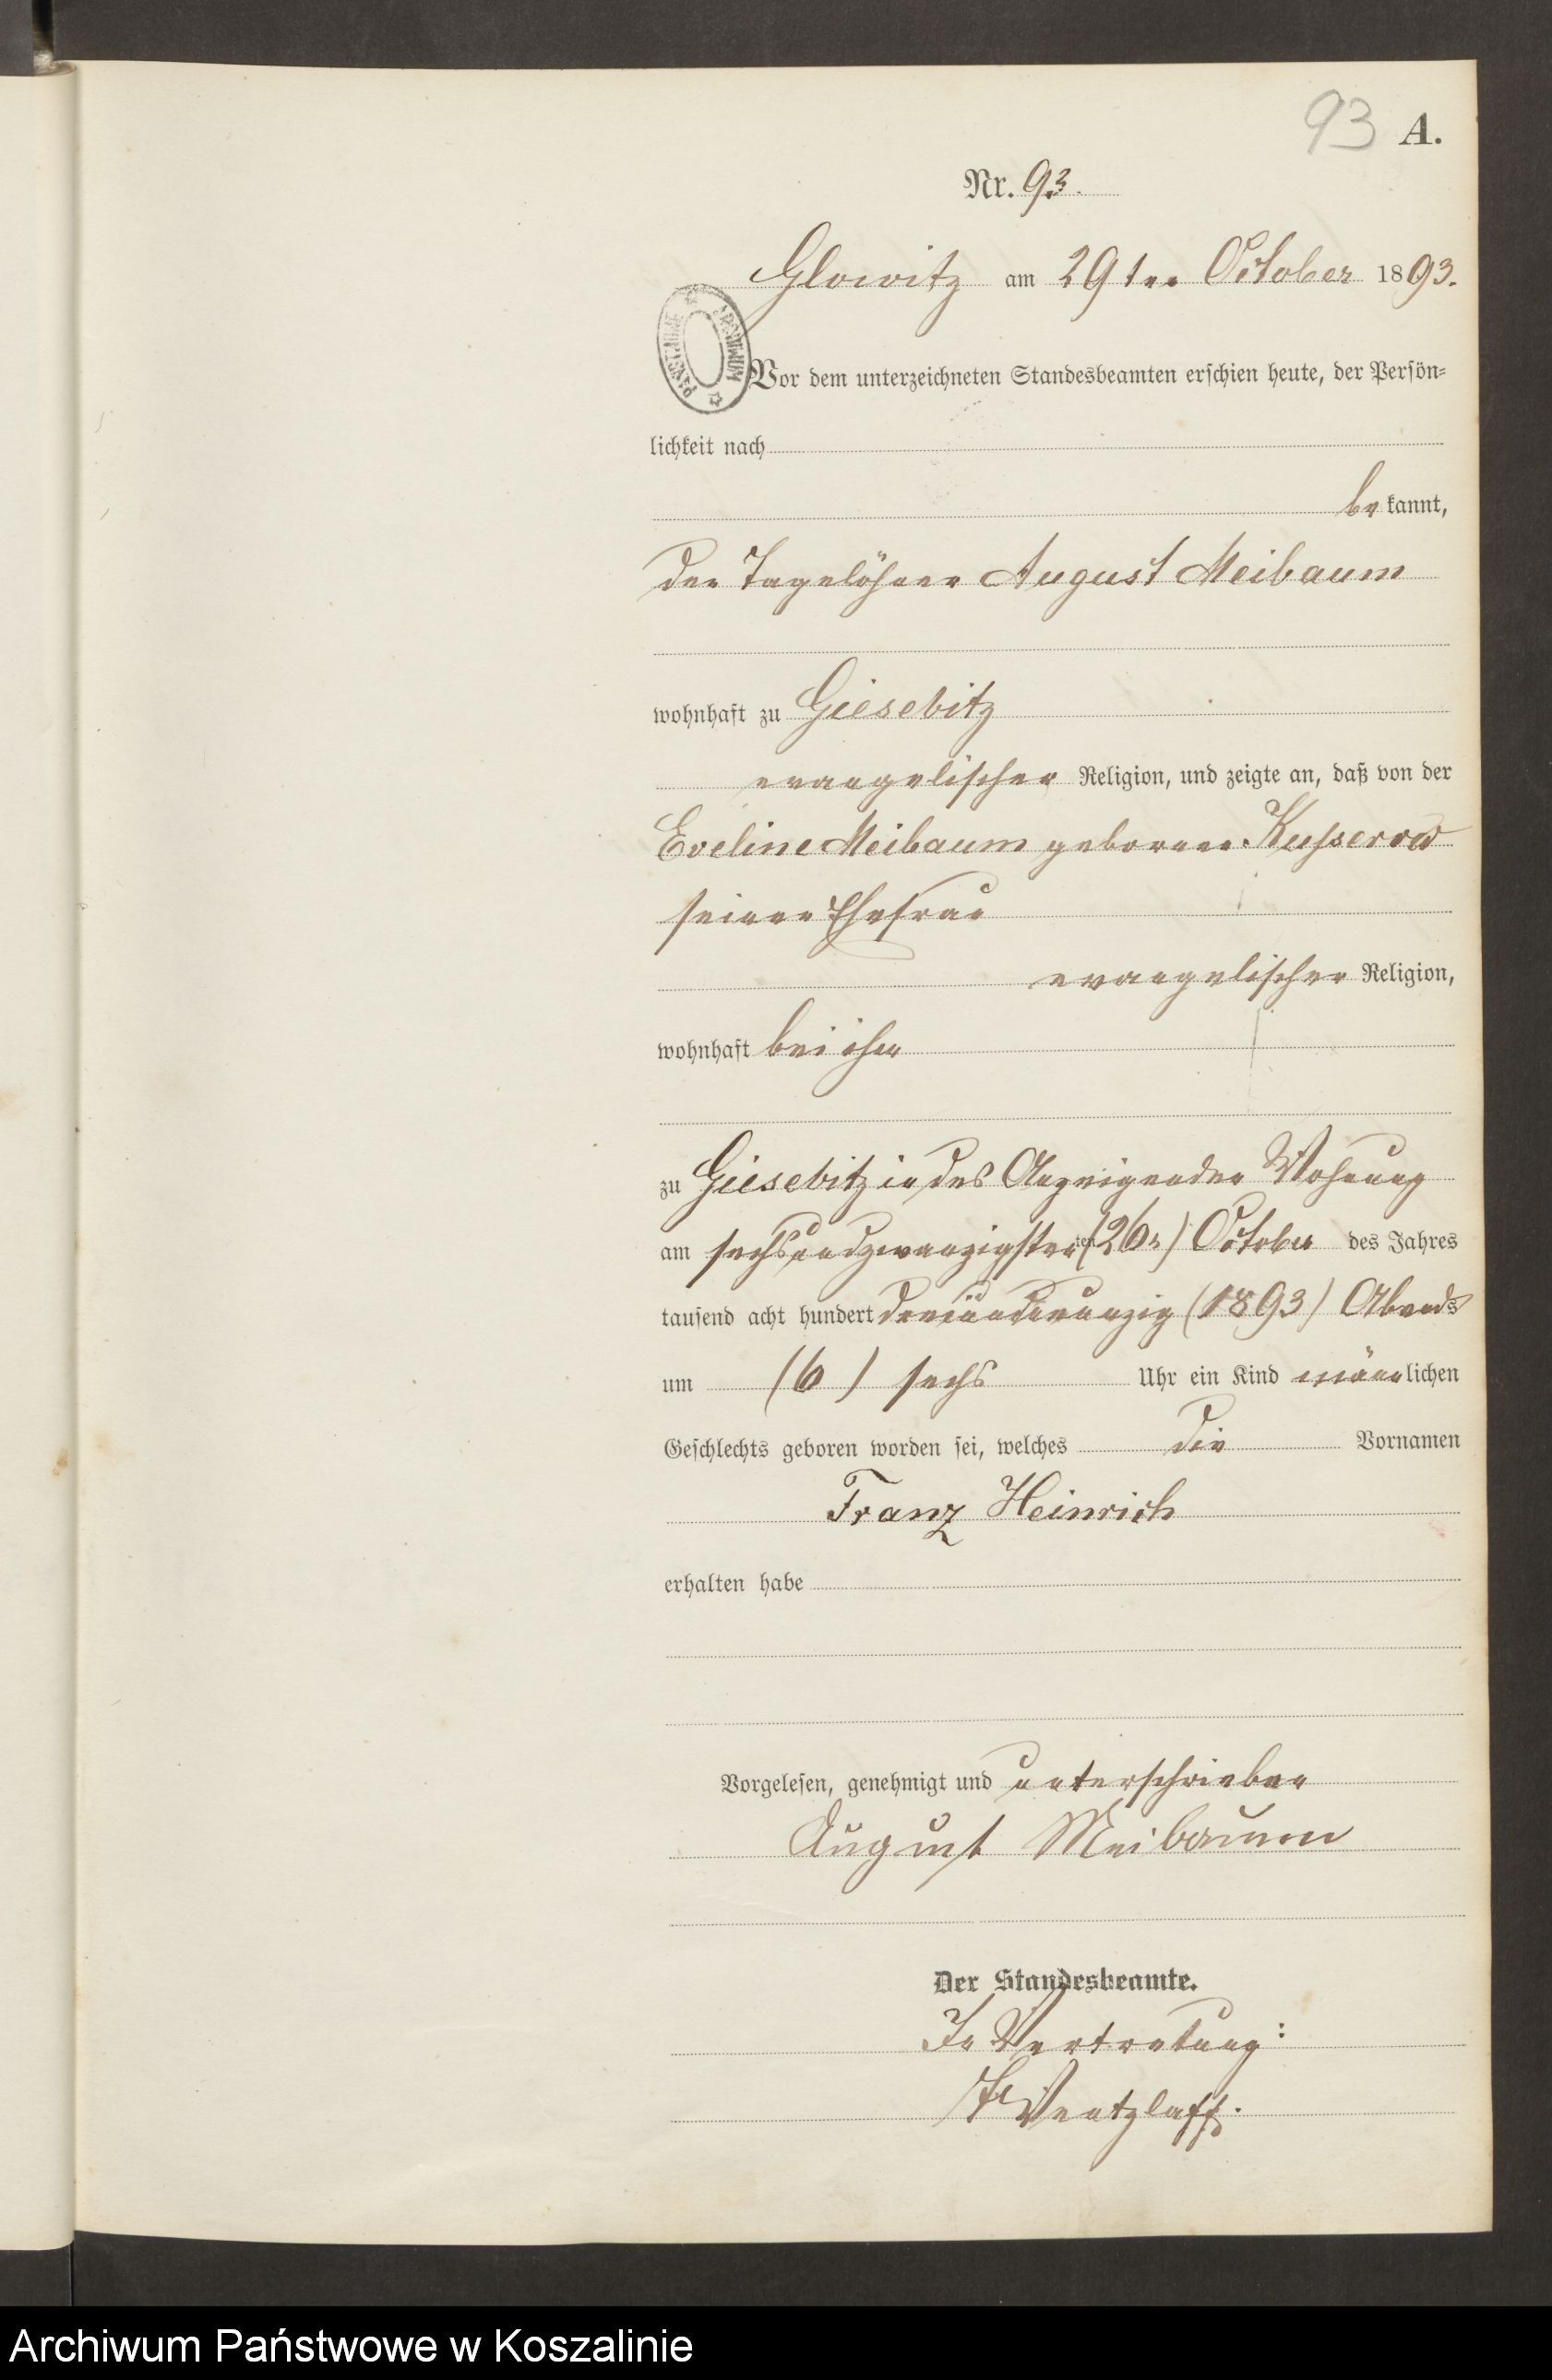 93 A.
Nr. 93.
Glowitz am 29ten October 1893.
ARCHIWUM PAŃSTWOWE
Vor dem unterzeichneten Standesbeamten erschien heute, der Persön-
lichkeit nach
be kannt,
der Tagelöhner August Meibaum
wohnhaft zu Giesebitz
evangelischer Religion, und zeigte an, daß von der
Eveline Meibaum geborenen Kusserow
seiner Ehefrau
evangelischer Religion,
wohnhaft bei ihm
zu Giesebitz in des Anzeigenden Wohnung
am sechsundzwanzigsten ten (26n) October des Jahres
tausend acht hundert dreiundneunzig (1893) Abends
um (6) sechs Uhr ein Kind männlichen
Geschlechts geboren worden sei, welches die Vornamen
Franz Heinrich
erhalten habe
Vorgelesen, genehmigt und unterschrieben
August Meibaum
Der Standesbeamte.
In Vertretung:
Wentzlaff.
Archiwum Państwowe w Koszalinie